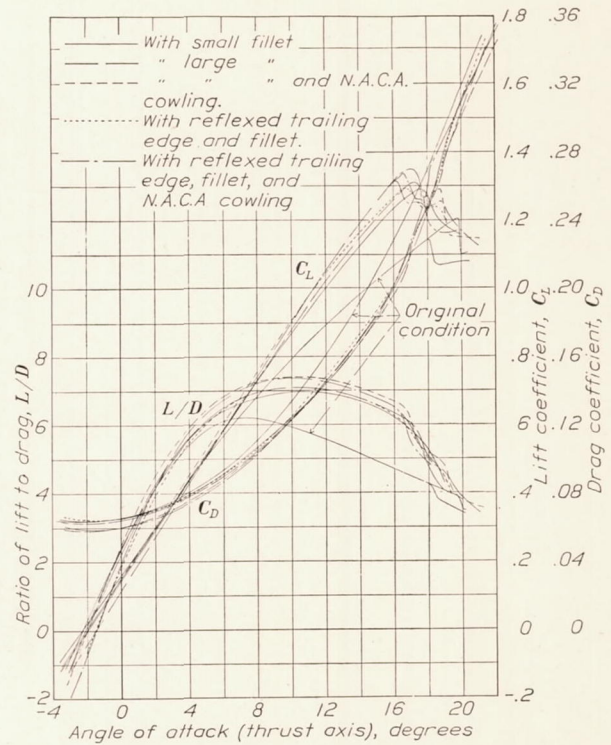 With small fillet
" large "
" " " and N.A.C.A.
cowling.
With reflexed trailing
edge and fillet.
With reflexed trailing
edge, fillet, and
N.A.C.A cowling
C_L
L/D
C_D
Original
condition
Ratio of lift to drag, L/D
10
8
6
4
2
0
-2
-4 0 4 8 12 16 20
Angle of attack (thrust axis), degrees
1.8 .36
1.6 .32
1.4 .28
1.2 .24
1.0 .20
.8 .16
.6 .12
.4 .08
.2 .04
0 0
-.2
Lift coefficient, C_L
Drag coefficient, C_D